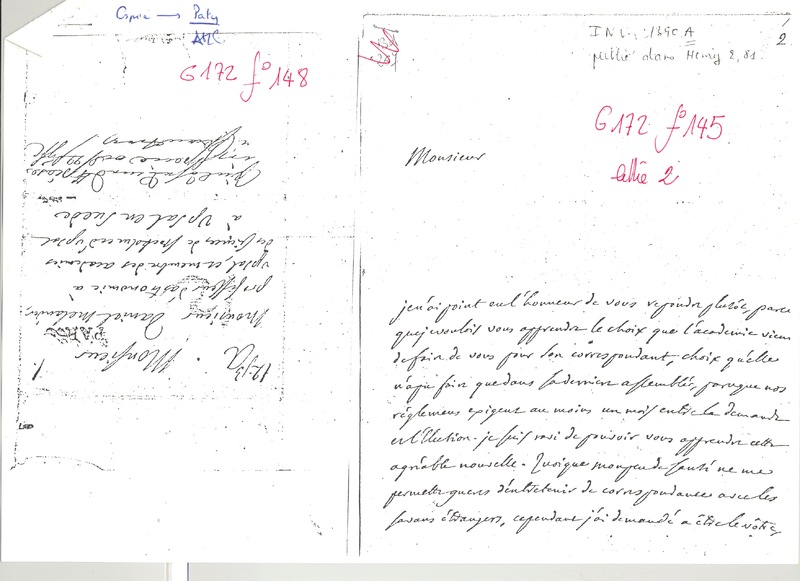 Copie → Paty
ARC
G172 f° 148
Monsieur
Monsieur Daniel Melander,
professeur d'astronomie à
Upsal, et membre des académies
des sciences de Stockholm et d'Upsal
à Upsal en Suede
INV. 139C A
publié dans Henry 2, 81.
2
G172 f° 145
lettre 2
Monsieur
je n'ai point eu l'honneur de vous repondre plutôt, parce
que je voulois vous apprendre le choix que l'academie vient
de faire de vous pour son correspondant, choix qu'elle
n'a pu faire que dans sa derniere assemblée, parceque nos
réglemens exigent au moins un mois entre la demande
et l'élection. je suis ravi de pouvoir vous apprendre cette
agréable nouvelle. Quoique mon peu de santé ne me
permette gueres d'entretenir de correspondance avec les
savans étrangers, cependant j'ai demandé a être le vôtre,